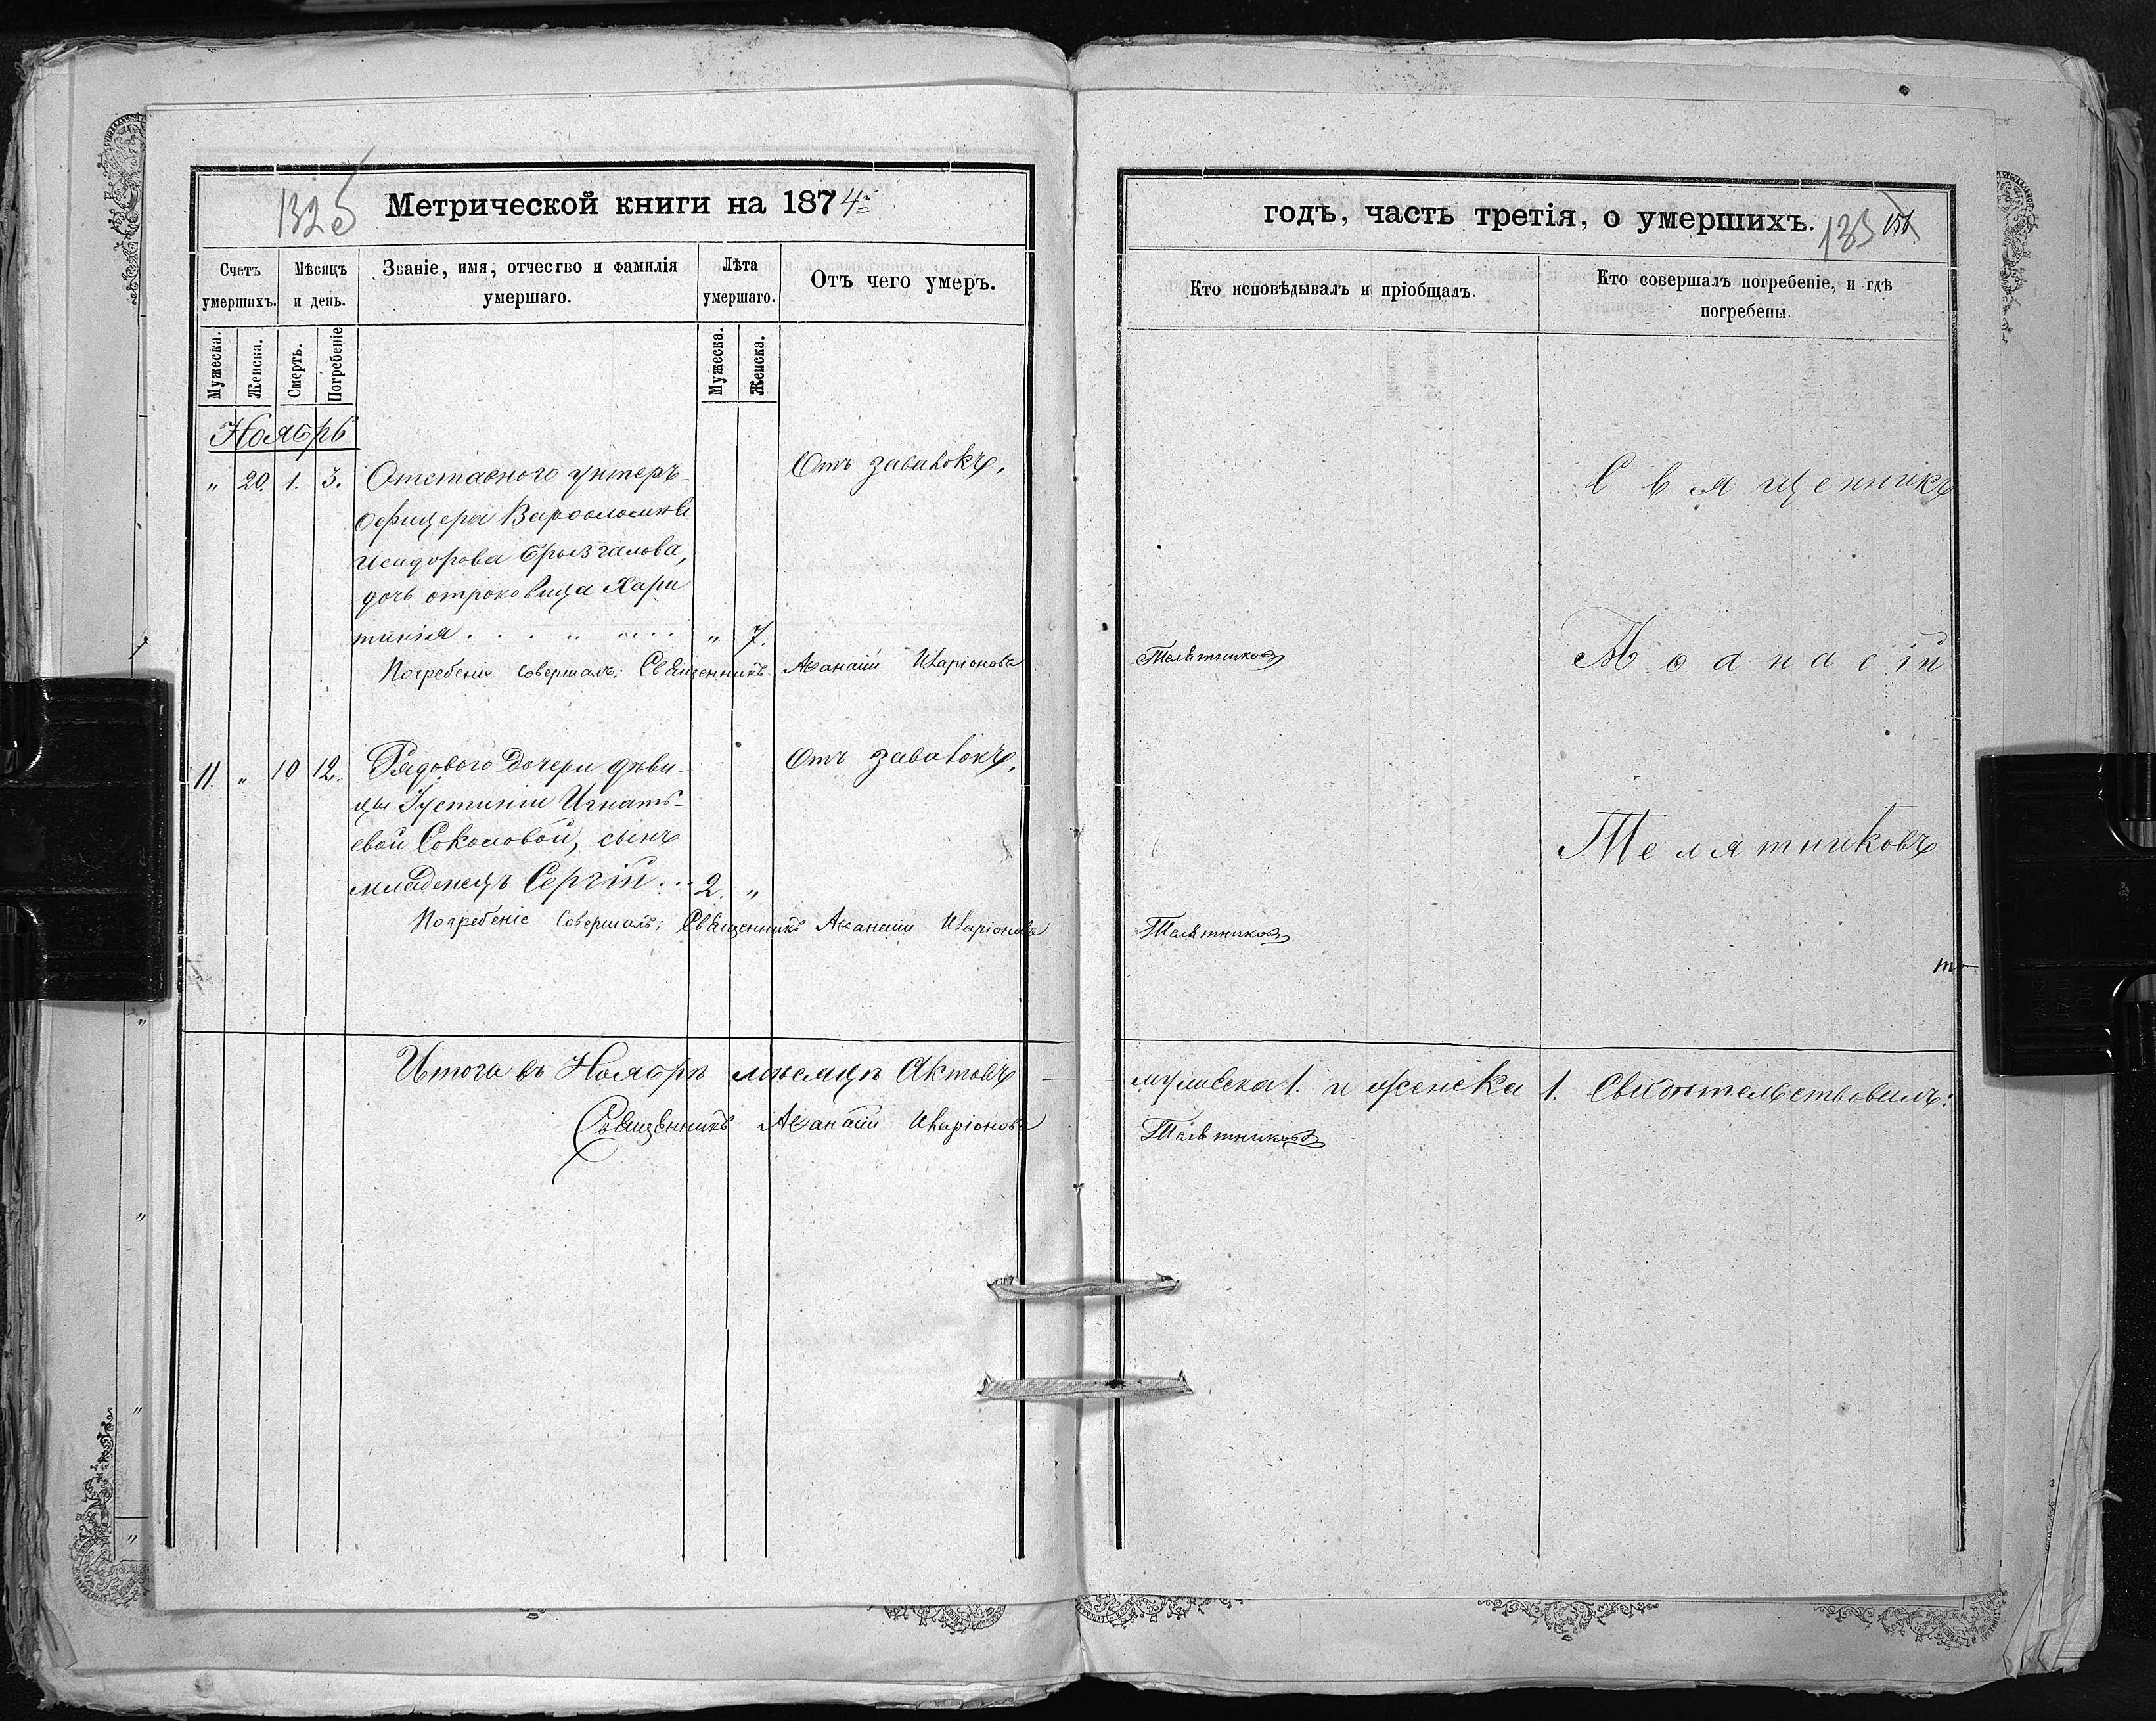 132 об
Метрической книги на 1874й
Счетъ умершихъ.
Мѣсяцъ и день.
Званіе, имя, отчество и фамилія умершаго.
Лѣта умершаго.
Отъ чего умеръ.
Мужеска.
Женска.
Смерть.
Погребеніе
Мужеска.
Женска.
Ноябрь
„ 20. 1. 3. Отставного унтеръ- Отъ завалокъ.
Офицера Варѳоломѣя
Исидорова Брызгалова,
дочь отроковица Хари
тинія . . . „ „ . . . „ 7.
Погребеніе совершалъ: Священникъ Аѳанасій Иларіоновъ
11. „ 10 12. Рядового Дочери дѣви- Отъ завалокъ.
цы Іустиніи Игнать-
евой Соколовой, сынъ
младенецъ Сергій . . . 2. „
Погребеніе Совершалъ: Священникъ Аѳанасій Иларіоновъ
Итого въ Ноябрѣ мѣсяцѣ Актовъ —
Священникъ Аѳанасій Иларіоновъ
годъ, часть третія, о умершихъ.
133
Кто исповѣдывалъ и пріобщалъ.
Кто совершалъ погребеніе, и гдѣ погребены.
Священникъ
Телятниковъ
Аѳанасій
Телятниковъ
Телятниковъ
мужеска 1. и женска 1. Свидѣтельствовалъ:
Телятниковъ